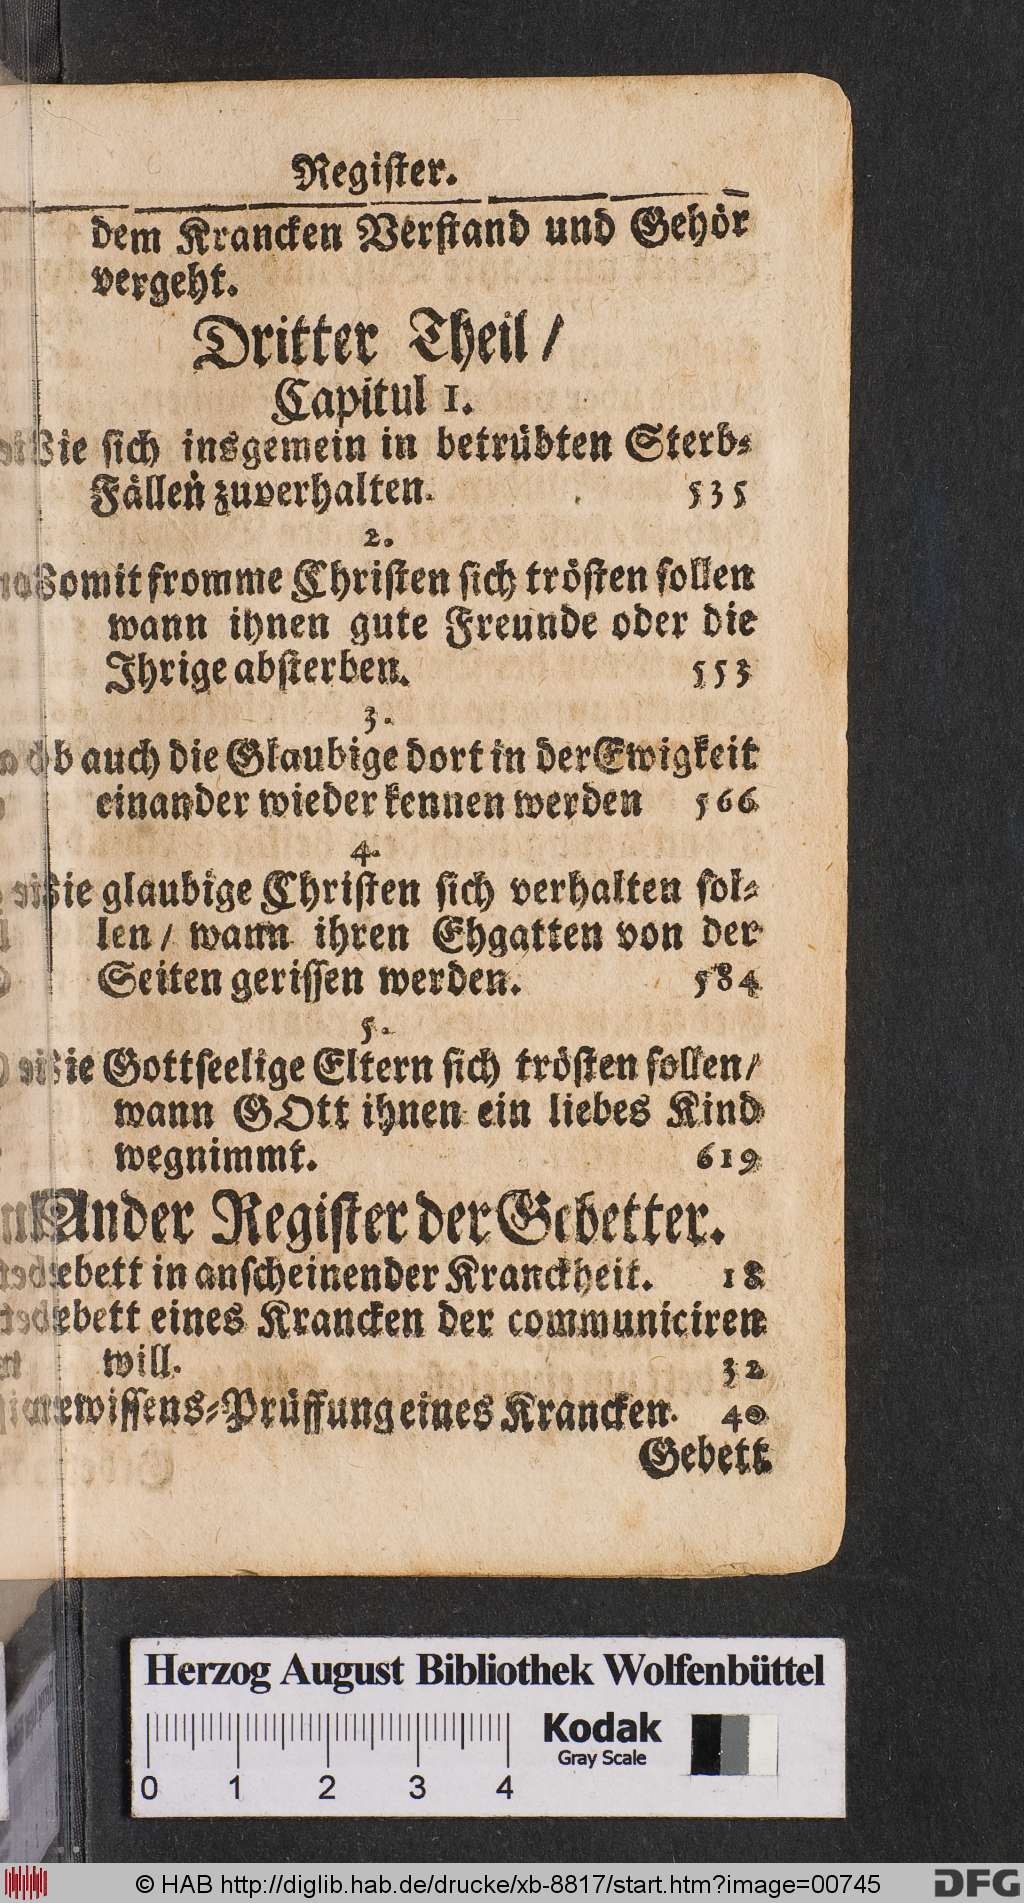 Register.
dem Krancken Verstand und Gehör
vergeht.
Dritter Theil /
Capitul 1.
Wie sich insgemein in betrübten Sterb⸗
Fällen zuverhalten. 535
2.
Womit fromme Christen sich trösten sollen
wann ihnen gute Freunde oder die
Ihrige absterben. 553
3.
Ob auch die Glaubige dort in der Ewigkeit
einander wieder kennen werden 566
4.
Wie glaubige Christen sich verhalten sol⸗
len / wann ihren Ehgatten von der
Seiten gerissen werden. 584
5.
Wie Gottseelige Eltern sich trösten sollen /
wann GOtt ihnen ein liebes Kind
wegnimmt. 619
Ander Register der Gebetter.
Gebett in anscheinender Kranckheit. 18
Gebett eines Krancken der communiciren
will. 32
Gewissens⸗Prüffung eines Krancken. 40
Gebett
Herzog August Bibliothek Wolfenbüttel
Kodak
Gray Scale
0 1 2 3 4
© HAB http://diglib.hab.de/drucke/xb-8817/start.htm?image=00745
DFG